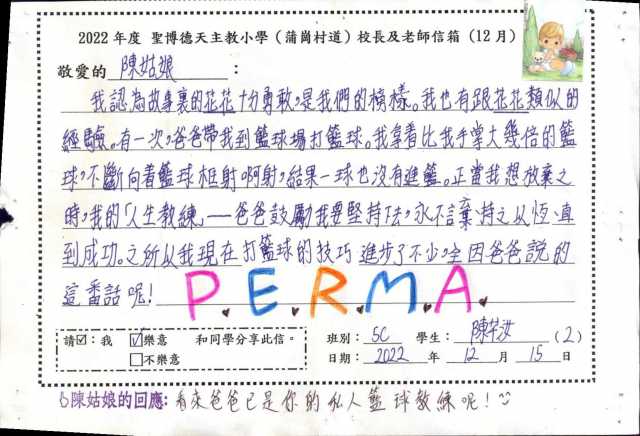 2022 年度 聖博德天主教小學（蒲崗村道）校長及老師信箱（12月）
敬愛的 陳姑娘 ：
我認為故事裏的花花十分勇敢，是我們的榜樣。我也有跟花花類似的
經驗。有一次，爸爸帶我到籃球場打籃球。我拿着比我手掌大幾倍的籃
球，不斷向着籃球框射啊射，結果一球也沒有進籃。正當我想放棄之
時，我的「人生教練」──爸爸鼓勵我要堅持下去，永不言棄，持之以恆，直
到成功。之所以我現在打籃球的技巧進步了不少，全因爸爸說的
這番話呢！
P.E.R.M.A.
請☑：我 ☑樂意 和同學分享此信。 班別：5C 學生：陳芊汝 (2)
□不樂意 日期：2022 年 12 月 15 日
陳姑娘的回應：看來爸爸已是你的私人籃球教練呢！